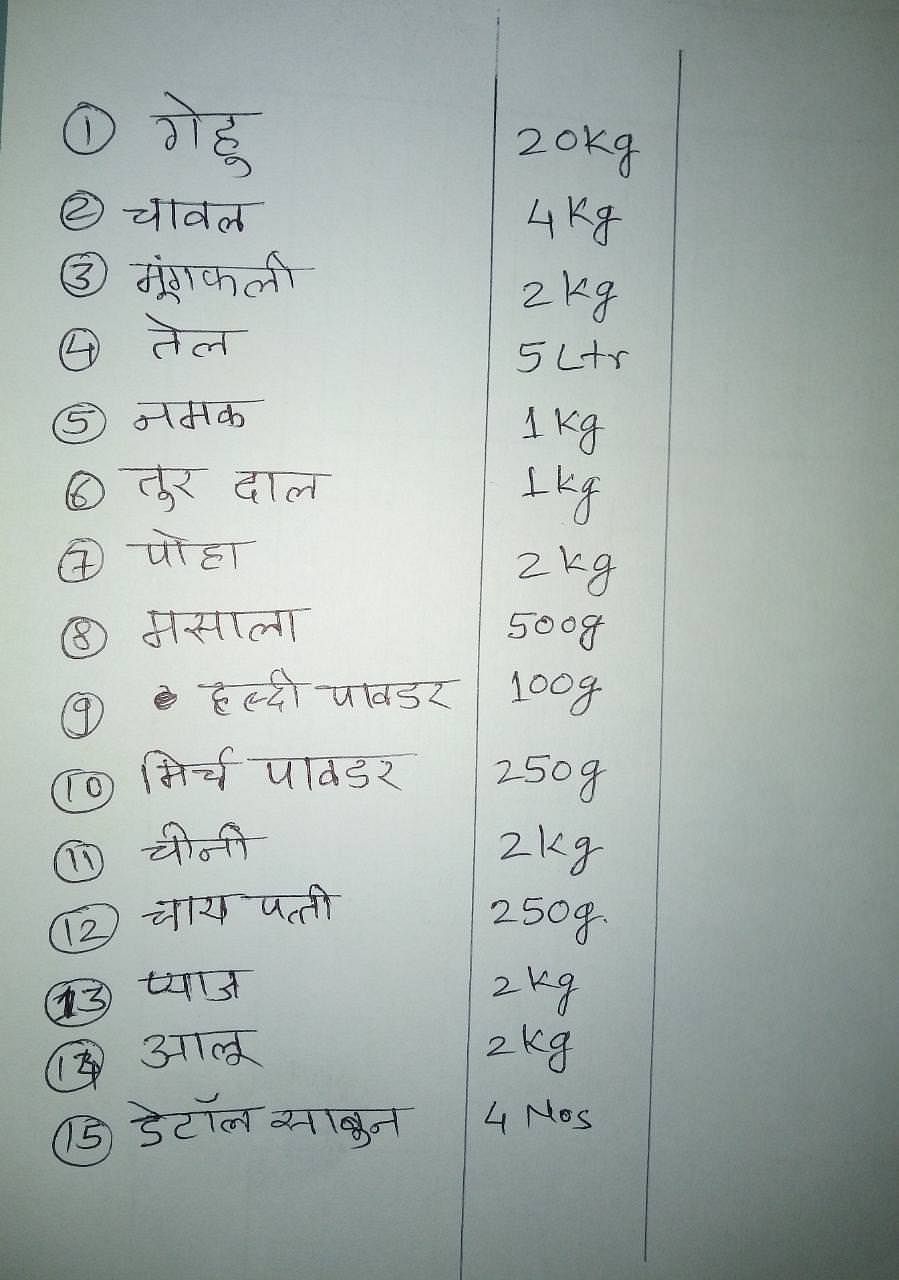 ① गेहु 20kg
② चावल 4kg
③ मूंगफली 2kg
④ तेल 5 Ltr
⑤ नमक 1kg
⑥ तुर दाल 1kg
⑦ पोहा 2kg
⑧ मसाला 500g
⑨ हल्दी पावडर 100g
⑩ मिर्च पावडर 250g
⑪ चीनी 2kg
⑫ चाय पत्ती 250g.
⑬ प्याज 2kg
⑭ आलू 2kg
⑮ डेटॉल साबुन 4 Nos